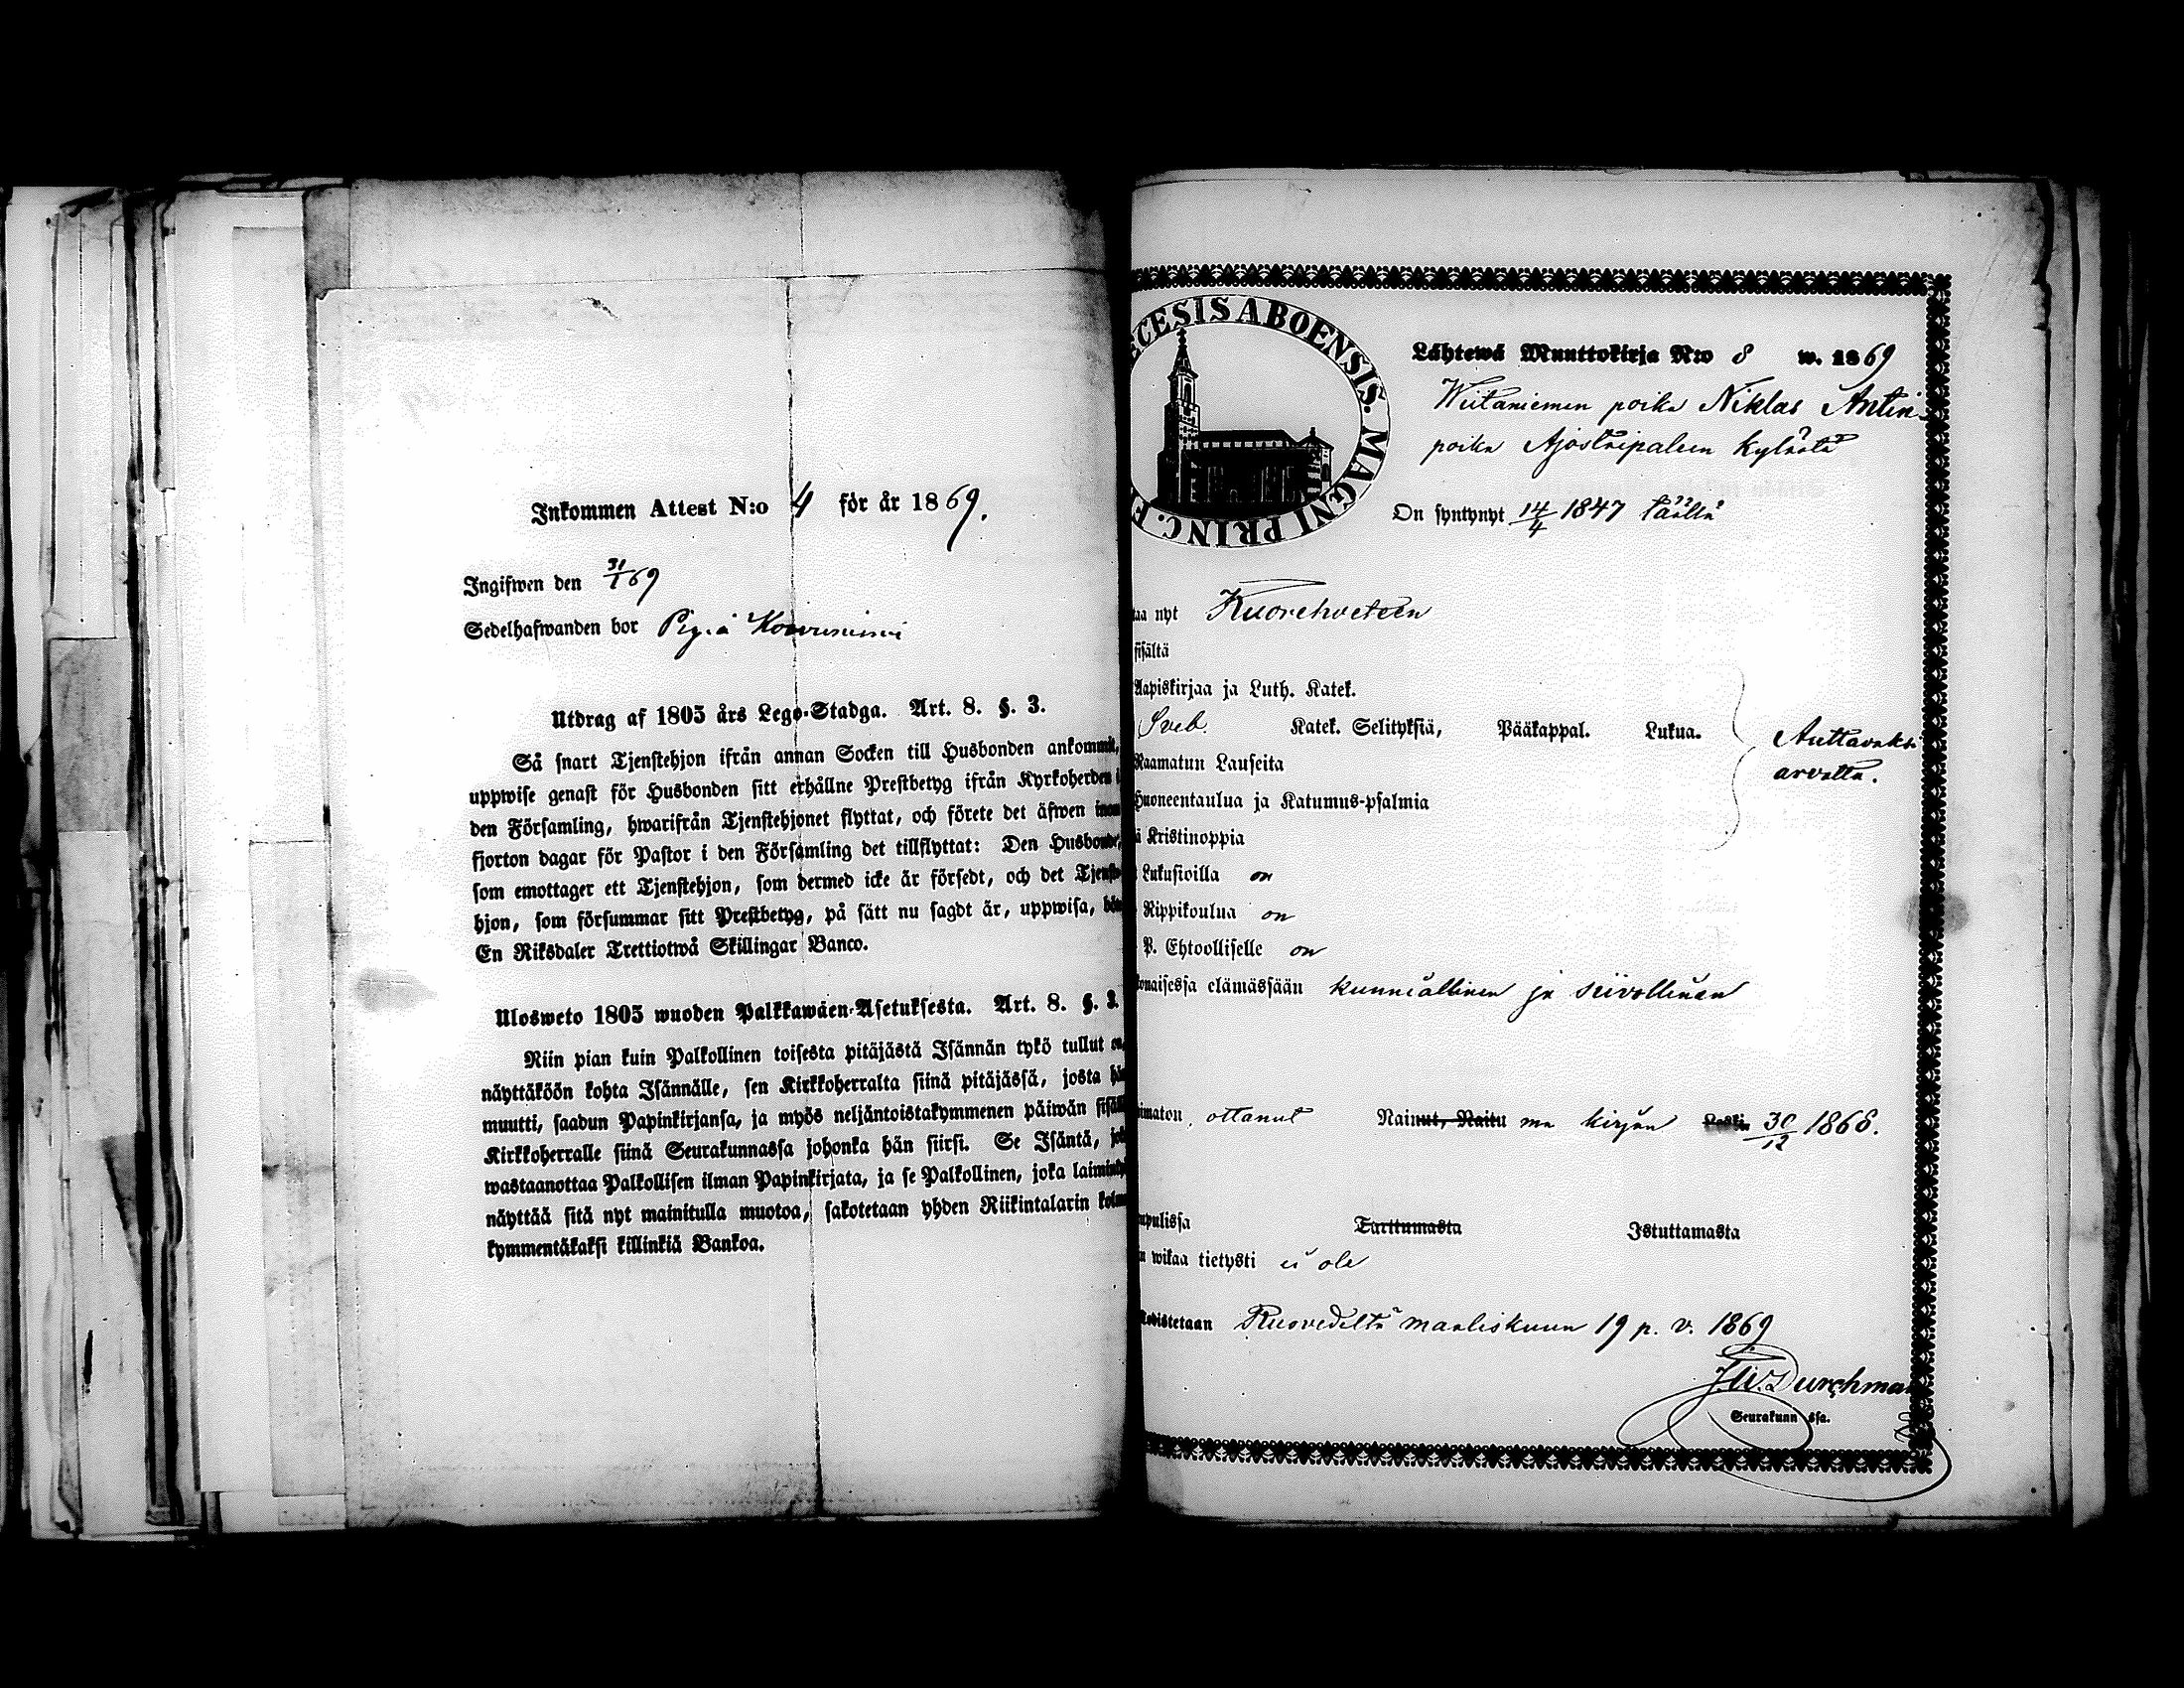 Inkommen Attest N:o 4 för år 1869.
Ingifwen den 31/1 69
Sedelhafwanden bor Pig. å
Utdrag af 1805 års Lego-Stadga. Art. 8. §. 3.
Så snart Tjenstehjon ifrån annan Socken till Husbonden ankommit,
uppwise genast för Husbonden sitt erhållne Prestbetyg ifrån Kyrkoherden i
den Församling, hwarifrån Tjenstehjonet flyttat, och förete det äfwen inom
fjorton dagar för Pastor i den Församling det tillflyttat: Den Husbonde,
som emottager ett Tjenstehjon, som dermed icke är försedt, och det Tjenste-
hjon, som försummar sitt Prestbetyg, på sätt nu sagdt är, uppwisa, böt
En Riksdaler Trettiotwå Skillingar Banco.
Ulosweto 1805 wuoden Palkkawäen-Asetuksesta. Art. 8. §. 3.
Niin pian kuin Palkollinen toisesta pitäjästä Isännän tykö tullut on,
näyttäköön kohta Isännälle, sen Kirkkoherralta siinä pitäjässä, josta hän
muutti, saadun Papinkirjansa, ja myös neljäntoistakymmenen päiwän sisäll
Kirkkoherralle siinä Seurakunnassa johonka hän siirsi. Se Isäntä, jok
wastaanottaa Palkollisen ilman Papinkirjata, ja se Palkollinen, joka laiminly
näyttää sitä nyt mainitulla muotoa, sakotetaan yhden Riikintalarin kolme
kymmentäkaksi killinkiä Bankoa.
CESIS ABOENSIS. MAGNI PRINC. F
Lähtewä Muuttokirja N:o 8 w. 1869
Wiitaniemen poika Niklas Antin
poika Ajostaipaleen kylästä
On syntynyt 14/4 1847 täällä
taa nyt Kuorehveteen
sisältä
Aapiskirjaa ja Luth. Katek.
Sveb. Katek. Selityksiä, Pääkappal. Lukua.
Auttavaksi
arvattu.
Raamatun Lauseita
Huoneentaulua ja Katumus-psalmia
ä Kristinoppia
Lukusioilla on
Rippikoulua on
P. Ehtoolliselle on
onaisessa elämässään kunniallinen ja siivollinen
imaton, ottanut Nainut, Naitu ma kirjan Leski 30/12 1868.
upulissa Tarttumasta Istuttamasta
n wikaa tietysti ei ole
Todistetaan Ruovedeltä maaliskuun 19 p. v. 1869
J.W. Durchman
Seurakunn ssa.